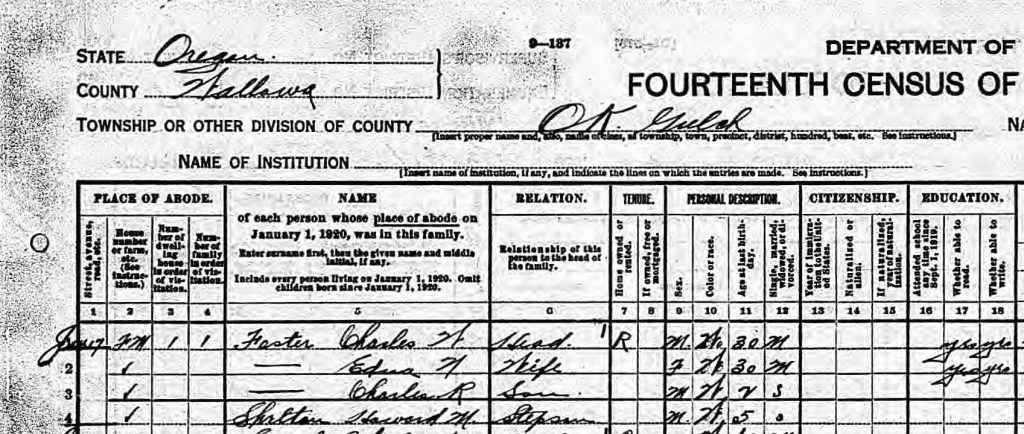 9—137
STATE Oregon.
DEPARTMENT OF
COUNTY Wallowa
FOURTEENTH CENSUS OF
TOWNSHIP OR OTHER DIVISION OF COUNTY OK Gulch
[Insert proper name and, also, name of class, as township, town, precinct, district, hundred, beat, etc. See instructions.]
NA
NAME OF INSTITUTION
[Insert name of institution, if any, and indicate the lines on which the entries are made. See instructions.]
PLACE OF ABODE. NAME RELATION. TENURE. PERSONAL DESCRIPTION. CITIZENSHIP. EDUCATION.
Street, avenue, road, etc.
House number or farm, etc. (See instructions.)
Number of dwelling house in order of visitation.
Number of family in order of visitation.
of each person whose place of abode on
January 1, 1920, was in this family.
Enter surname first, then the given name and middle
initial, if any.
Include every person living on January 1, 1920. Omit
children born since January 1, 1920.
Relationship of this
person to the head of
the family.
Home owned or rented.
If owned, free or mortgaged.
Sex.
Color or race.
Age at last birthday.
Single, married, widowed, or divorced.
Year of immigration to the United States.
Naturalized or alien.
If naturalized, year of naturalization.
Attended school any time since Sept. 1, 1919.
Whether able to read.
Whether able to write.
1 2 3 4 5 6 7 8 9 10 11 12 13 14 15 16 17 18
FM 1 1 Foster Charles W Head 1 R M W 30 M yes yes
2 ✓ — Edna N Wife F W 30 M yes yes
3 ✓ — Charles R Son M W 2 S
4 ✓ Shelton Howard M. Stepson M. W 5 S